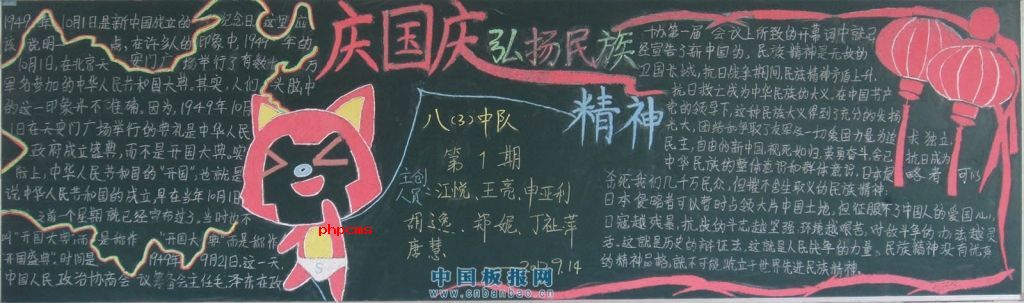 庆国庆 弘扬民族
精神
1949年10月1日是新中国成立的一纪念日。这里应
该说明一点,在许多人的印象中,1949年的
10月1日,在北京天安门广场举行了有数十万
军名参加的中华人民共和国大典。其实,人们头脑中
的这一印象并不准确。因为,1949年10月
1日在天安门广场举行的典礼是中华人民
政府成立盛典,而不是开国大典。实
际上,中华人民共和国的“开国”,也就是
说中华人民共和国的成立,早在当年10月1日
之前一个星期就已经宣布过了。当时也不
叫“开国大典”,而是称作“开国大典”而是称作
开国盛典”。时间是1949年9月21日。这一天,
中国人民政治协商会议筹备会主任毛泽东在政
八(3)中队
第1期
主创
人员:江悦、王亮、申亚利
胡逸、郑妮、丁祉萍
唐慧
2009.9.14
协第一届会议上所致的开幕词中就已
经宣告了新中国的。民族精神是无敌的
卫国长城,抗日战争期间,民族精神矛盾上升,
抗日救亡成为中华民族的大义,在中国共产
党的领导下,这种民族大义得到了充分的发扬
光大,团结和争取了友军及一切爱国力量为追求独立
民主,自由的新中国,视死如归,英勇奋斗,舍己抗日成为
中华民族的整体意识和群体意识。日本侵略者可以
杀死我们几千万民众,但摧不垮生取义的民族精神;
日本侵略者可以暂时占领大片中国土地,但征服不了中国人的爱国心,
日寇越残暴,抗战的斗志越坚强,环境越艰苦,对敌斗争的办法越灵
活。这就是历史的辩证法,这就是人民战争的力量。民族精神没有优秀
的精神品格,就不可能屹立于世界先进民族精神。
phpcms
中国板报网
www.cnbanbao.cn